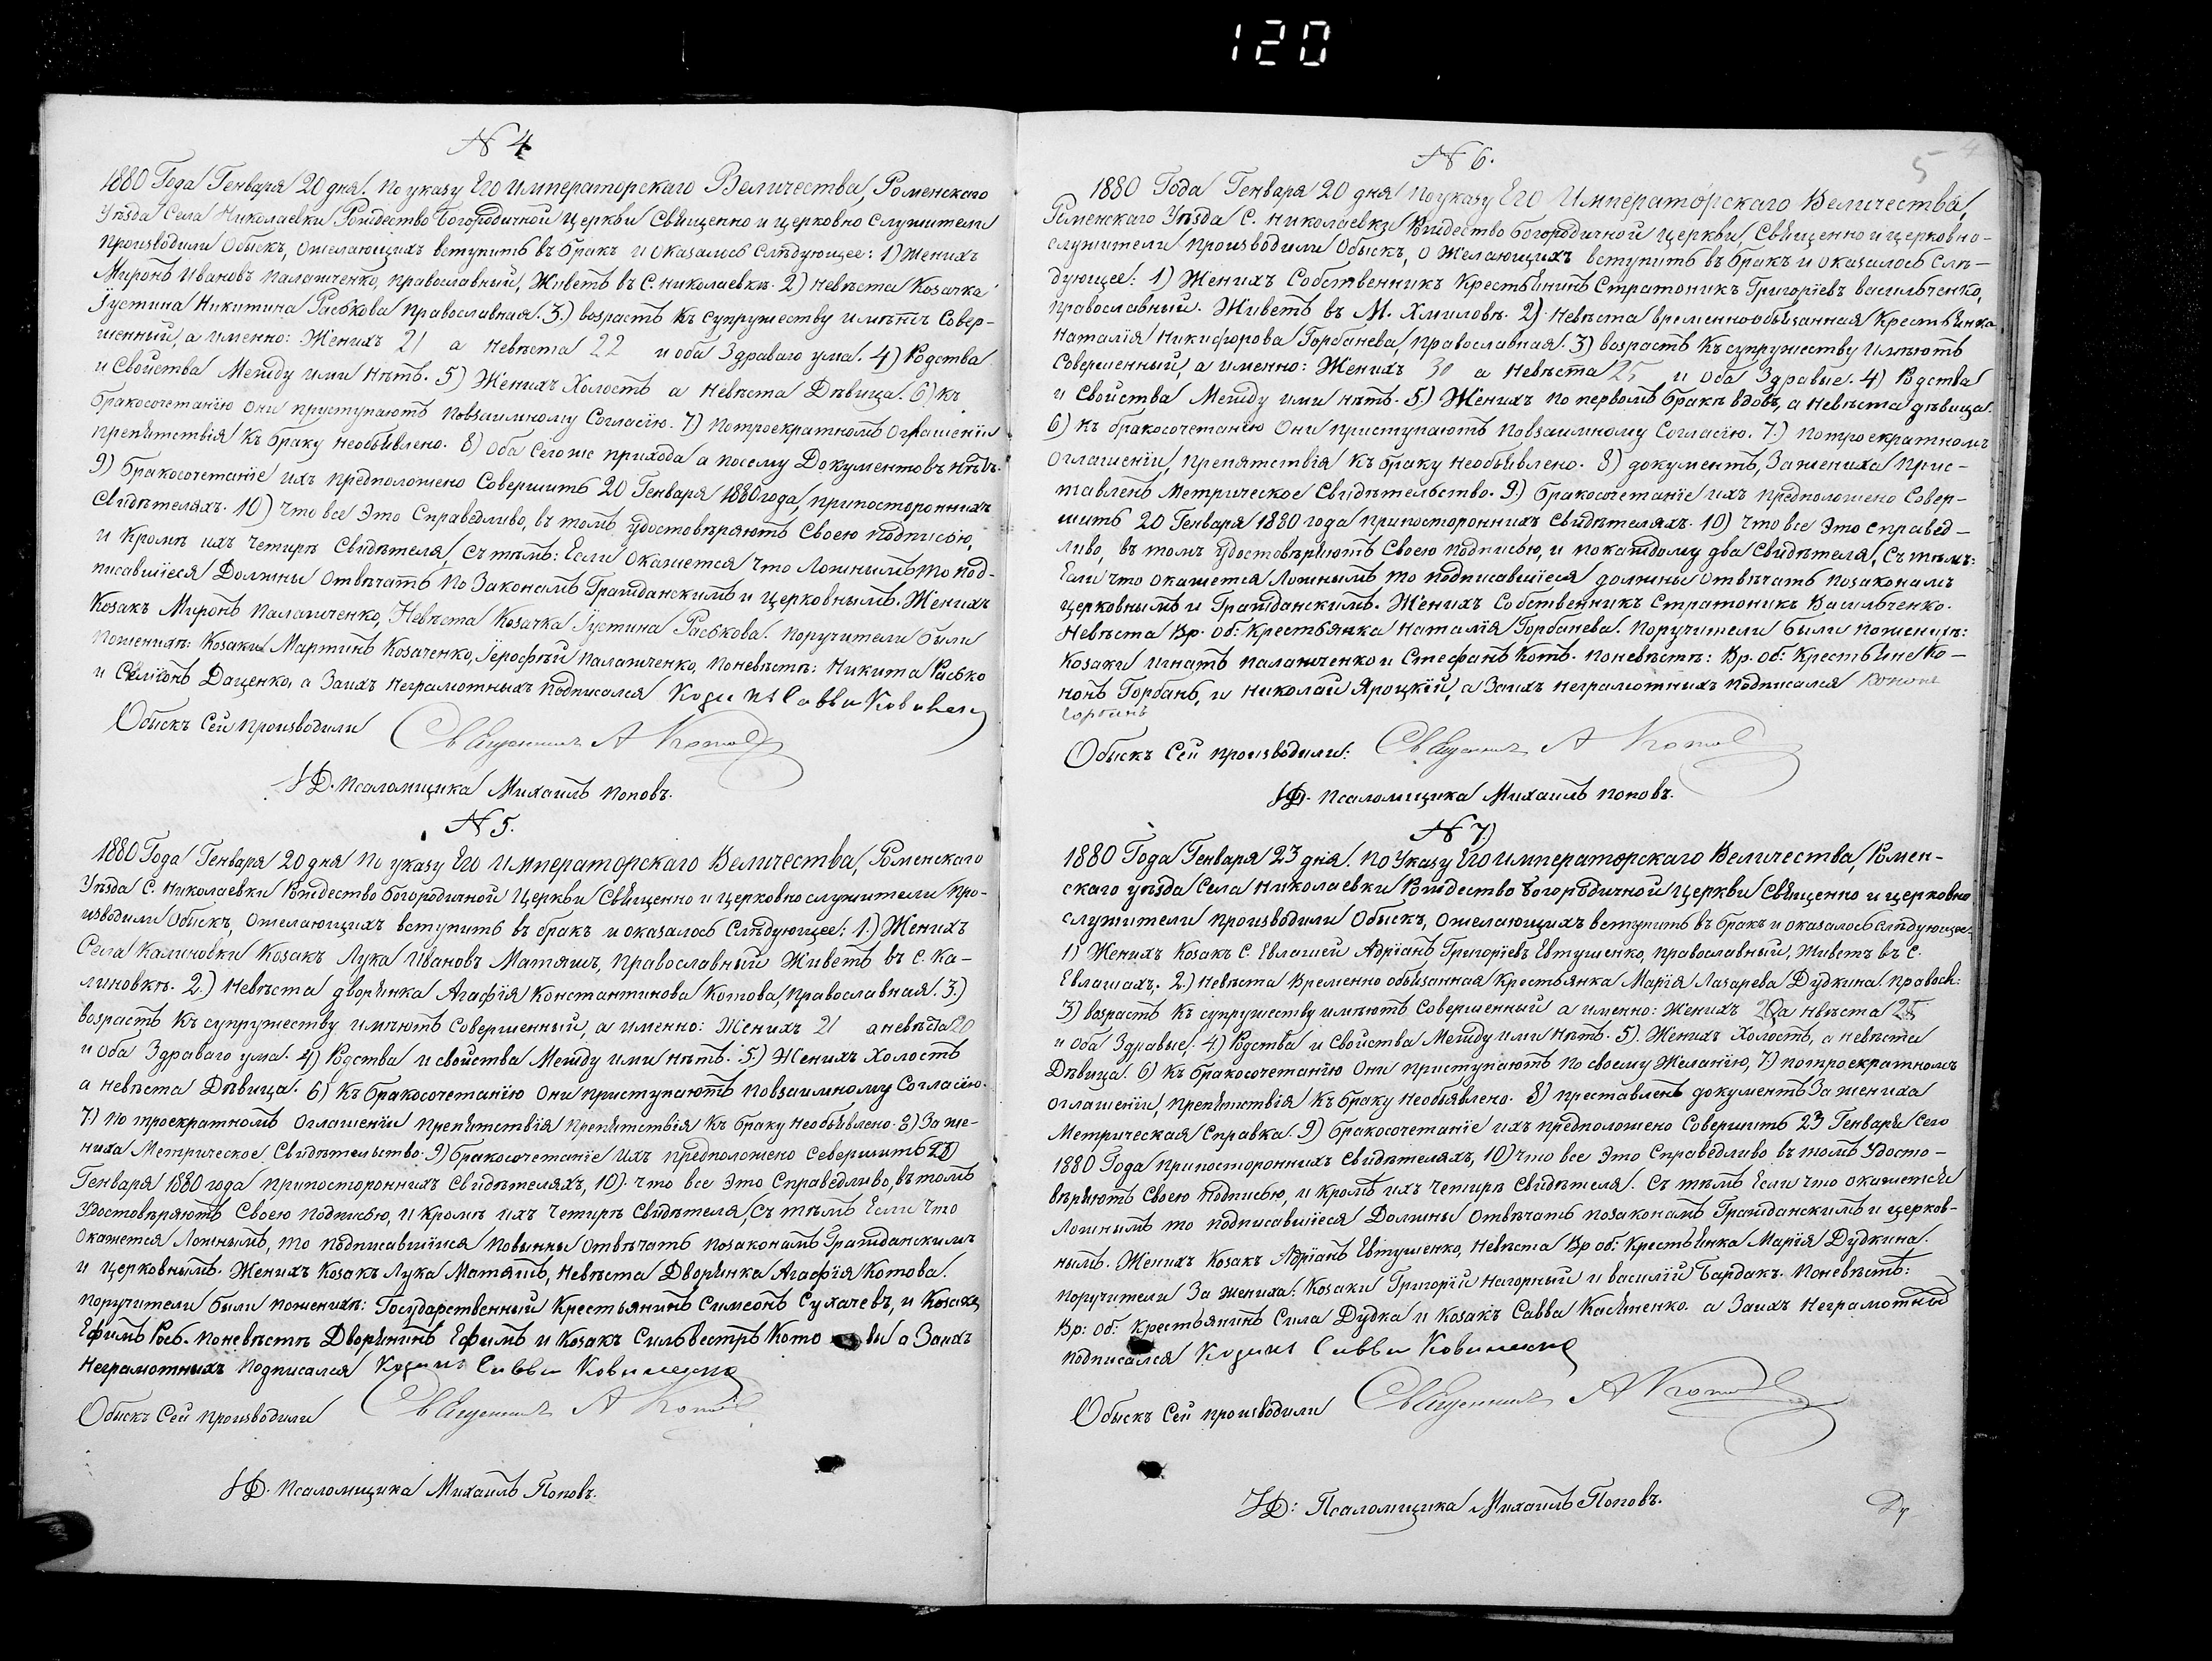 120
N 4
1880 Года Генваря 20 дня. По указу Его Императорскаго Величества, Роменскаго
Уѣзда Села Николаевки Рождество Богородичной Церкви Священно и церковно служители
производили Обыскъ, ожелающихъ вступить въ бракъ и оказалось слѣдующее: 1) Женихъ
Миронъ Ивановъ Палажченко, православный, Живетъ въ С. Николаевкѣ. 2) Невѣста Козачка
Іустина Никитина Раськова православная. 3.) возрастъ къ супружеству имѣютъ Совер-
шенный, а именно: Женихъ 21 а Невѣста 22 и оба Здраваго ума. 4) Родства
и Свойства Между ими нѣтъ. 5) Женихъ Холостъ а невѣста Дѣвица. 6) къ
бракосочетанію они приступаютъ повзаимному Согласію. 7) потроекратномъ Оглашеніи
препятствія къ браку необъявлено. 8) Оба Сегоже прихода а посему Документовъ нѣтъ.
9) бракосочетаніе ихъ предположено Совершить 20 Генваря 1880 года, припостороннихъ
Свидѣтеляхъ. 10) что все Это Справедливо, въ томъ удостовѣряютъ Своею подписью,
и Кромѣ ихъ четирѣ Свидѣтеля, Сътѣмъ: Если Окажется что Ложнымъ то под-
писавшіеся Должны Отвѣчать По Законамъ Гражданскимъ и Церковнымъ. Женихъ
Козакъ Миронъ Палажченко, Невѣста Козачка Іустина Раськова. Поручители были
пожениху: Козаки Мартинъ Козаченко, Іерофѣй Палажченко, поневѣстѣ: Никита Расько
и Симіонъ Даценко, а Заихъ Неграмотныхъ Подписался Козакъ Савва
Обыскъ Сей Производили Священникъ А Котовъ
И.Д. Псаломщика Михаилъ Поповъ.
N 5.
1880 Года Генваря 20 дня По указу Его Императорскаго Величества, Роменскаго
Уѣзда С. Николаевки Рождество Богородичной Церкви Священно и церковно служители про-
изводили Обыскъ, ожелающихъ вступить въ бракъ и оказалось Слѣдующее: 1.) Женихъ
Села Калиновки Козакъ Лука Ивановъ Матяшъ, православный Живетъ въ с. Ка-
линовкѣ. 2.) Невѣста дворянка Агафія Константинова Котова, православная. 3.)
возрастъ къ супружеству имѣютъ Совершенный, а именно: Женихъ 21 а невѣста 20
и Оба Здраваго ума. 4) Родства и свойства Между ими нѣтъ. 5.) Женихъ Холостъ
а невѣста Дѣвица. 6) Къ бракосочетанію Они приступаютъ повзаимному Согласію.
7) По троекратномъ Оглашеніи препятствія препятствія къ браку необъявлено. 8) За же-
ниха Метрическое Свидѣтельство. 9) бракосочетаніе Ихъ предположено Совершить 20
Генваря 1880 года припостороннихъ Свидѣтеляхъ, 10). что все Это Справедливо, въ томъ
Удостовѣряютъ Своею подписью, и кромѣ ихъ четирѣ Свидѣтеля, Съ тѣмъ Если что
Окажется Ложнымъ, то подписавшіися повынны Отвѣчать позаконамъ Гражданскимъ
и церковнымъ. Женихъ Козакъ Лука Матяшъ, невѣста Дворянка Агафія Котова.
поручители были пожениху: Государственный Крестьянинъ Симеонъ Сухачевъ, и Козакъ
Ефимъ Рось. поневѣстѣ Дворянинъ Ефимъ и Козакъ Сильвестръ Кото вы а Заихъ
Неграмотныхъ подписался Козакъ Савва
Обыскъ Сей производили Священникъ А Котовъ
И.Д. Псаломщика Михаилъ Поповъ.
5 4
N 6.
1880 Года Генваря 20 дня Поуказу Его Императорскаго Величества,
Роменскаго Уѣзда С. Николаевки Рождество Богородичной Церкви, Священно и церковно-
служители производили Обыскъ, о Желающихъ вступить въ бракъ и оказалось Слѣ-
дующее: 1) Женихъ Собственникъ Крестьянинъ Стратоникъ Григоріевъ Васильченко,
православный. Живетъ въ М. Хмиловѣ. 2) Невѣста временнообязанная Крестьянка
Наталія Никифорова Горбанева, православная. 3) возрастъ къ супружеству Имѣютъ
Совершенный, а именно: Женихъ 30 а Невѣста 25 и Оба Здравые. 4) Родства
и Свойства Между ими нѣтъ. 5.) Женихъ по первомъ бракѣ вдовъ, а невѣста дѣвица.
6) къ бракосочетанію Они приступаютъ повзаимному Согласію. 7.) потроекратномъ
Оглашеніи, препятствія къ браку необъявлено. 8) документъ, За жениха прис-
тавленъ Метрическое Свидѣтельство. 9.) бракосочетаніе ихъ предположено Совер-
шить 20 Генваря 1880 года припостороннихъ Свидѣтеляхъ. 10) что все Это справед-
ливо, въ томъ Удостовѣряютъ Своею подписью, и по каждому два Свидѣтеля, Съ тѣмъ:
Если что окажется Ложнымъ то подписавшіеся должны Отвѣчать позаконамъ
церковнымъ и Гражданскимъ. Женихъ Собственникъ Стратоникъ Васильченко.
Невѣста Вр. об: Крестьянка Наталія Горбанева. Поручители были пожениху:
Козаки Игнатъ Палажченко и Стефанъ Котъ. поневѣстѣ: Вр. об: Крестьяне Ко-
нонъ Горбань, и Николай Яроцкій, а Заихъ неграмотнихъ подписался Кононъ
Горбань
Обыскъ Сей производили: Священникъ А Котовъ
И.Д. Псаломщика Михаилъ поповъ.
N 7.)
1880 Года Генваря 23 дня. По Указу Его Императорскаго Величества, Ромен-
скаго уѣзда Села Николаевки Рождество Богородичной Церкви Священно и церковно
служители производили Обыскъ, ожелающихъ вступить въ бракъ и оказалось слѣдующее:
1) Женихъ Козакъ С. Евлашей Адріанъ Григоріевъ Евтушенко, православный, Живетъ въ С.
Евлашахъ. 2.) Невѣста Временно обязанная Крестьянка Марія Лазарева Дудкина. правосл:
3) возрастъ къ супружеству имѣютъ Совершенный а именно: Женихъ а Нвѣста 25
и Оба Здравые. 4) Родства и Свойства Между ими Нѣтъ. 5). Женихъ Холостъ, а невѣста
Дѣвица. 6) къ бракосочетанію Они приступаютъ По своему Желанію, 7) потроекратномъ
оглашеніи, препятствія къ браку необъявлено. 8) преставленъ документъ За жениха
Метрическая Справка. 9) бракосочетаніе ихъ предположено Совершить 23 Генваря Сего
1880 Года припостороннихъ Свидѣтеляхъ, 10) что все Это Справедливо въ томъ Удосто-
вѣряютъ Своею подписью, и кромѣ ихъ четирѣ Свидѣтеля. Съ тѣмъ Если что окажется
Ложнымъ то подписавшіеся Должны Отвѣчать позаконамъ Гражданскимъ и церков-
нымъ. Женихъ Козакъ Адріанъ Евтушенко, Невѣста Вр об: Крестьянка Марія Дудкина.
поручители За жениха: Козаки Григорій Нагорный и Василій Бардакъ. Поневѣстѣ:
Вр: об: Крестьянинъ Сила Дудка и Козакъ Савва Касяненко. а Заихъ Неграмотныхъ
подписался Козакъ Савва
Обыскъ Сей производили Священникъ А Котовъ
И.Д: Псаломщика Михаилъ Поповъ.
Ду